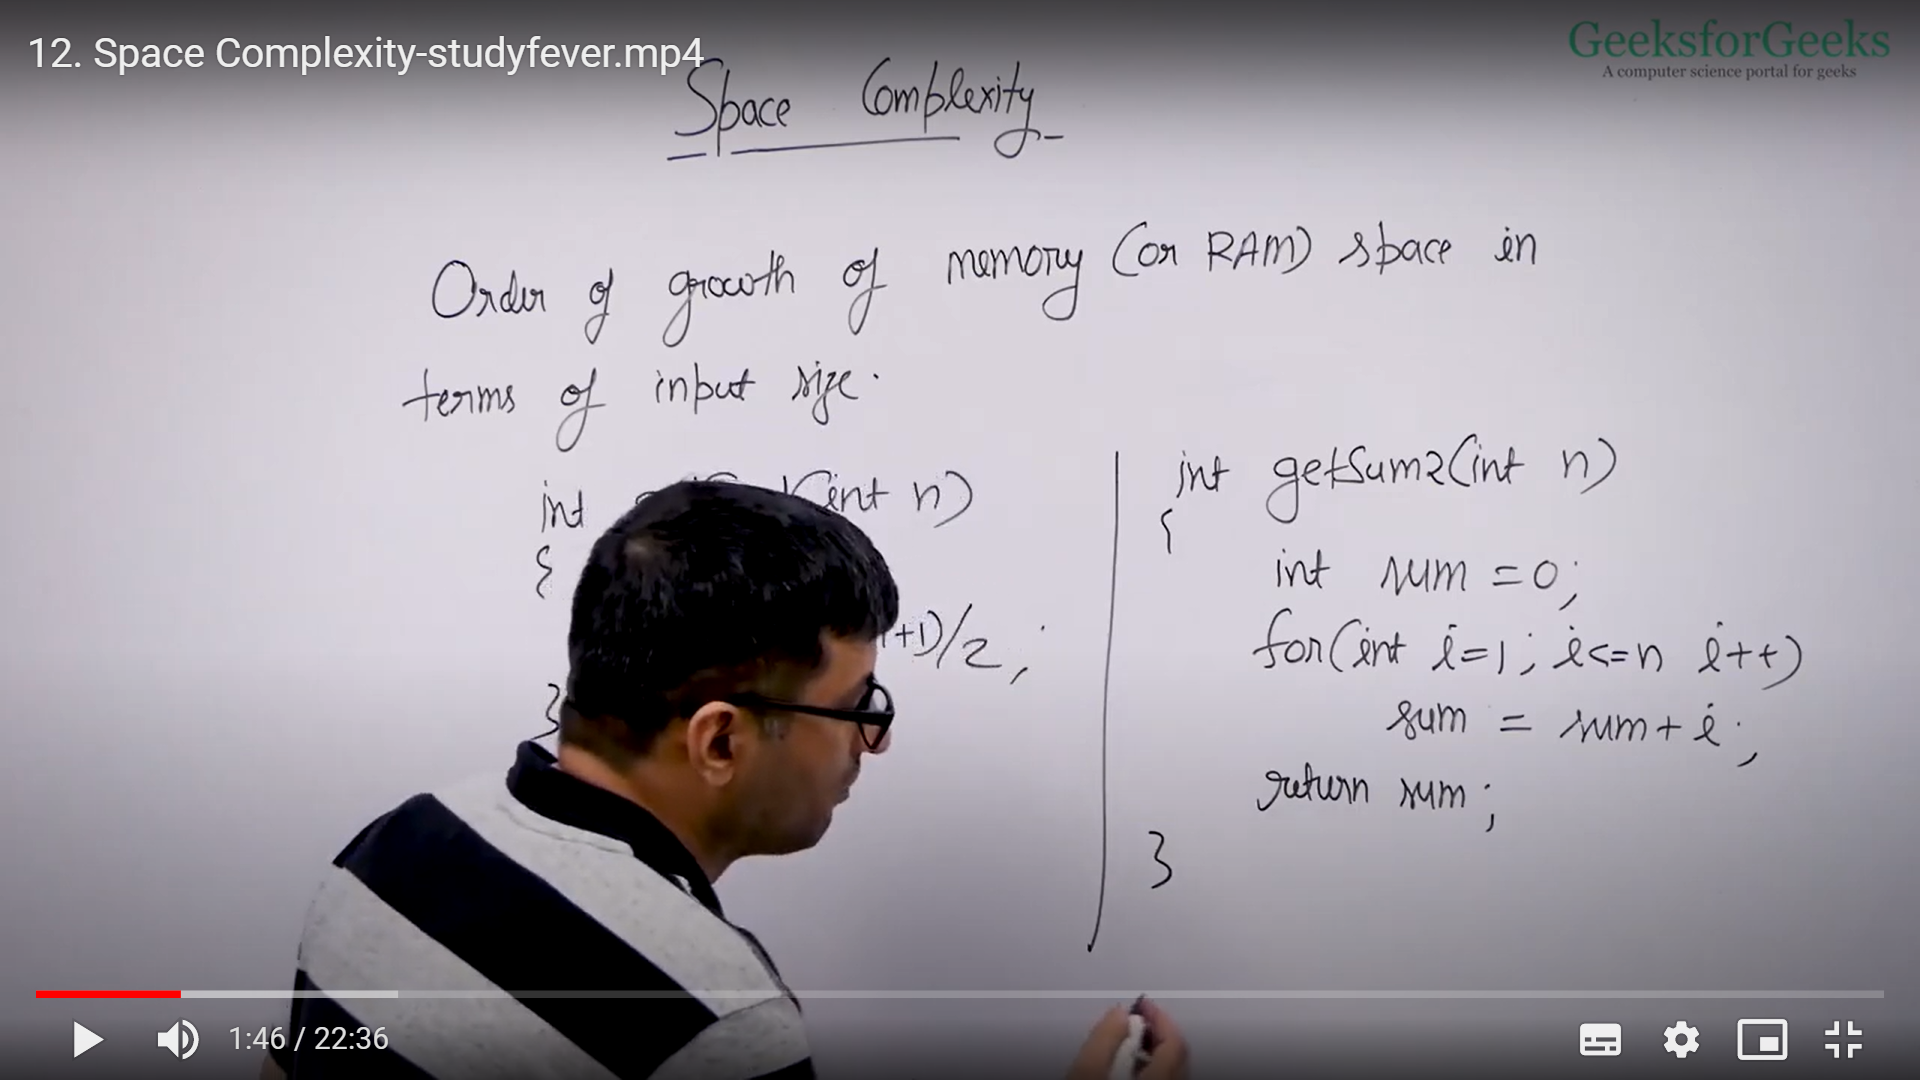 12. Space Complexity-studyfever.mp4
GeeksforGeeks
A computer science portal for geeks
Space Complexity
Order of growth of memory (or RAM) space in
terms of input size.
int (int n)
{
+1)/2;
}
int getSum2(int n)
{
int sum = 0;
for(int i=1; i<=n i++)
sum = sum + i;
return sum;
}
1:46 / 22:36